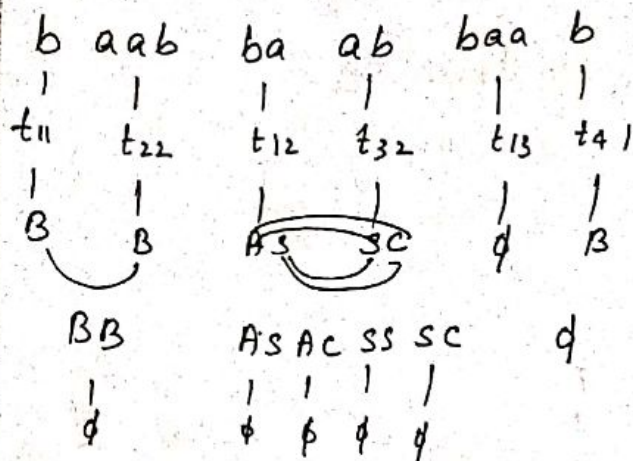 b aab ba ab baa b
t11 t22 t12 t32 t13 t41
B B AS SC φ B
BB AS AC SS SC φ
φ φ φ φ φ